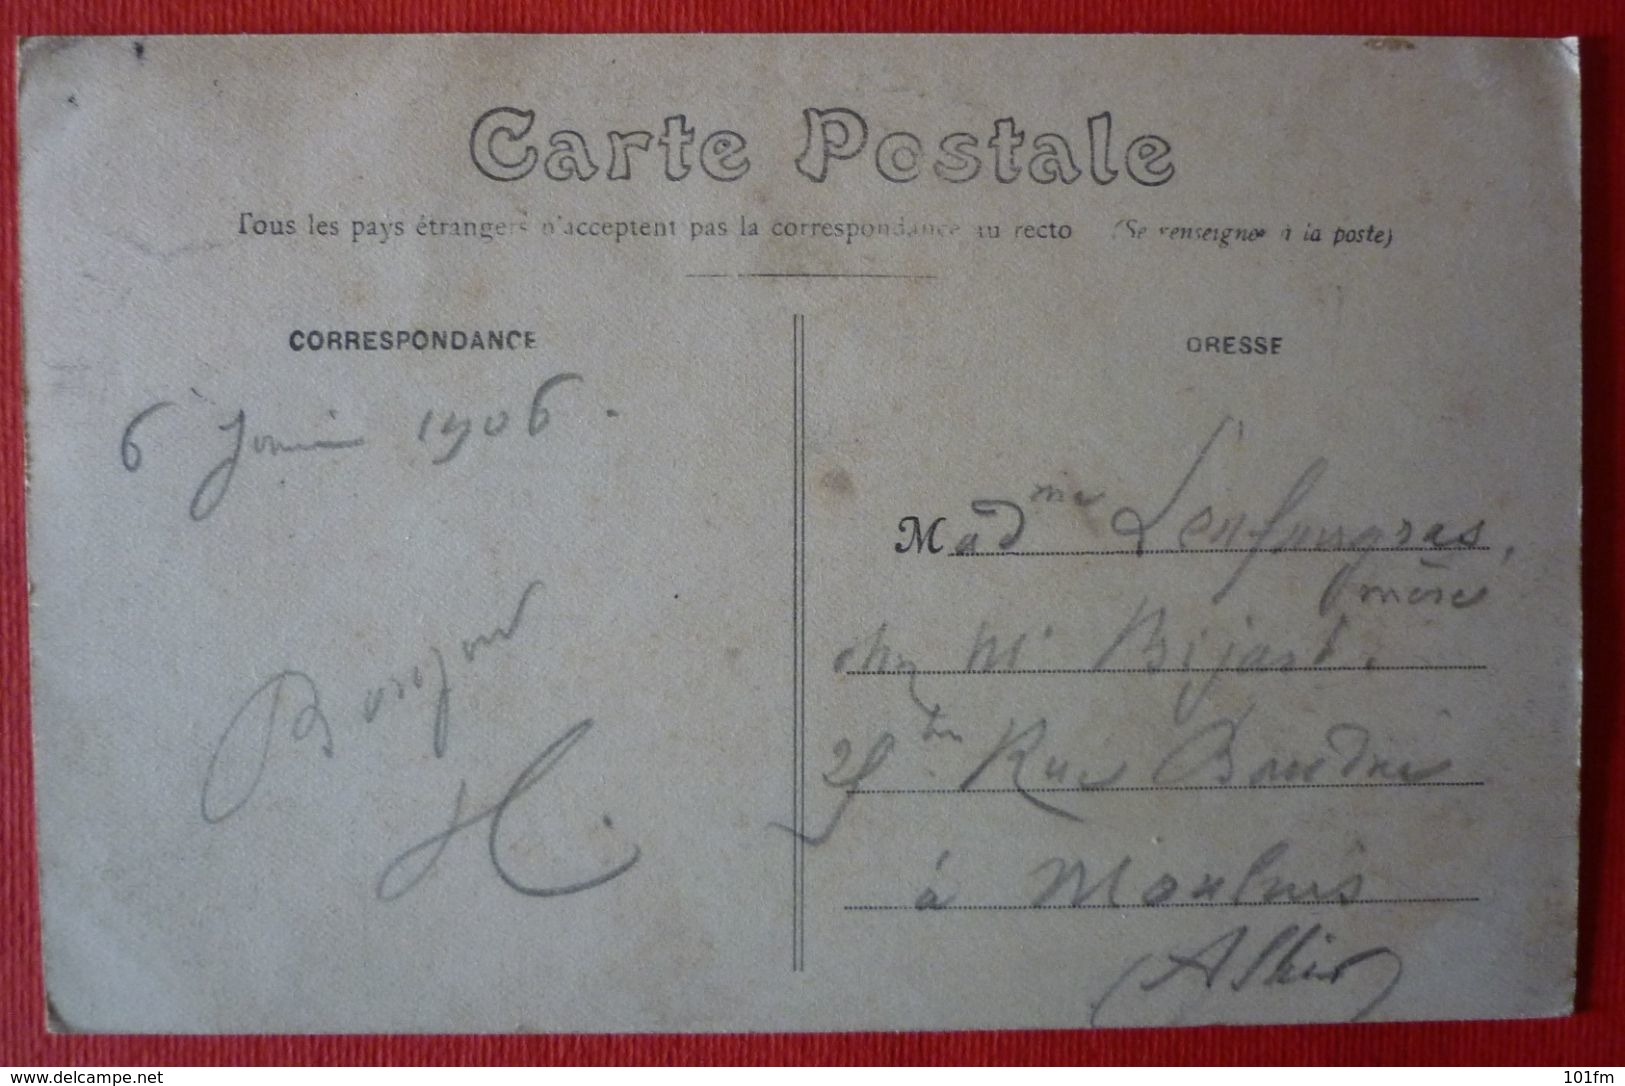 Carte Postale
Tous les pays étrangers n'acceptent pas la correspondance au recto (Se renseigner à la poste)
CORRESPONDANCE
6 Juin 1906.
Bonjour
H.
DRESSE
Madme
mère
chez Mr
Rue
à Moulins
(Allier)
delcampe.net
101fm